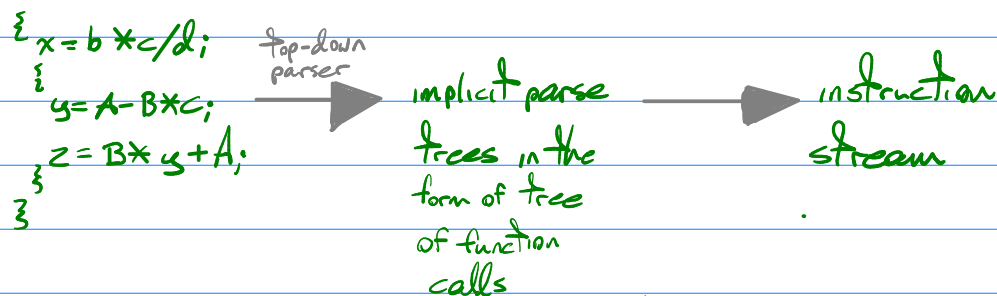 {
x = b * c/d;
{
y = A - B * c;
z = B * y + A;
}
}
top-down
parser
implicit parse
trees in the
form of tree
of function
calls
instruction
stream